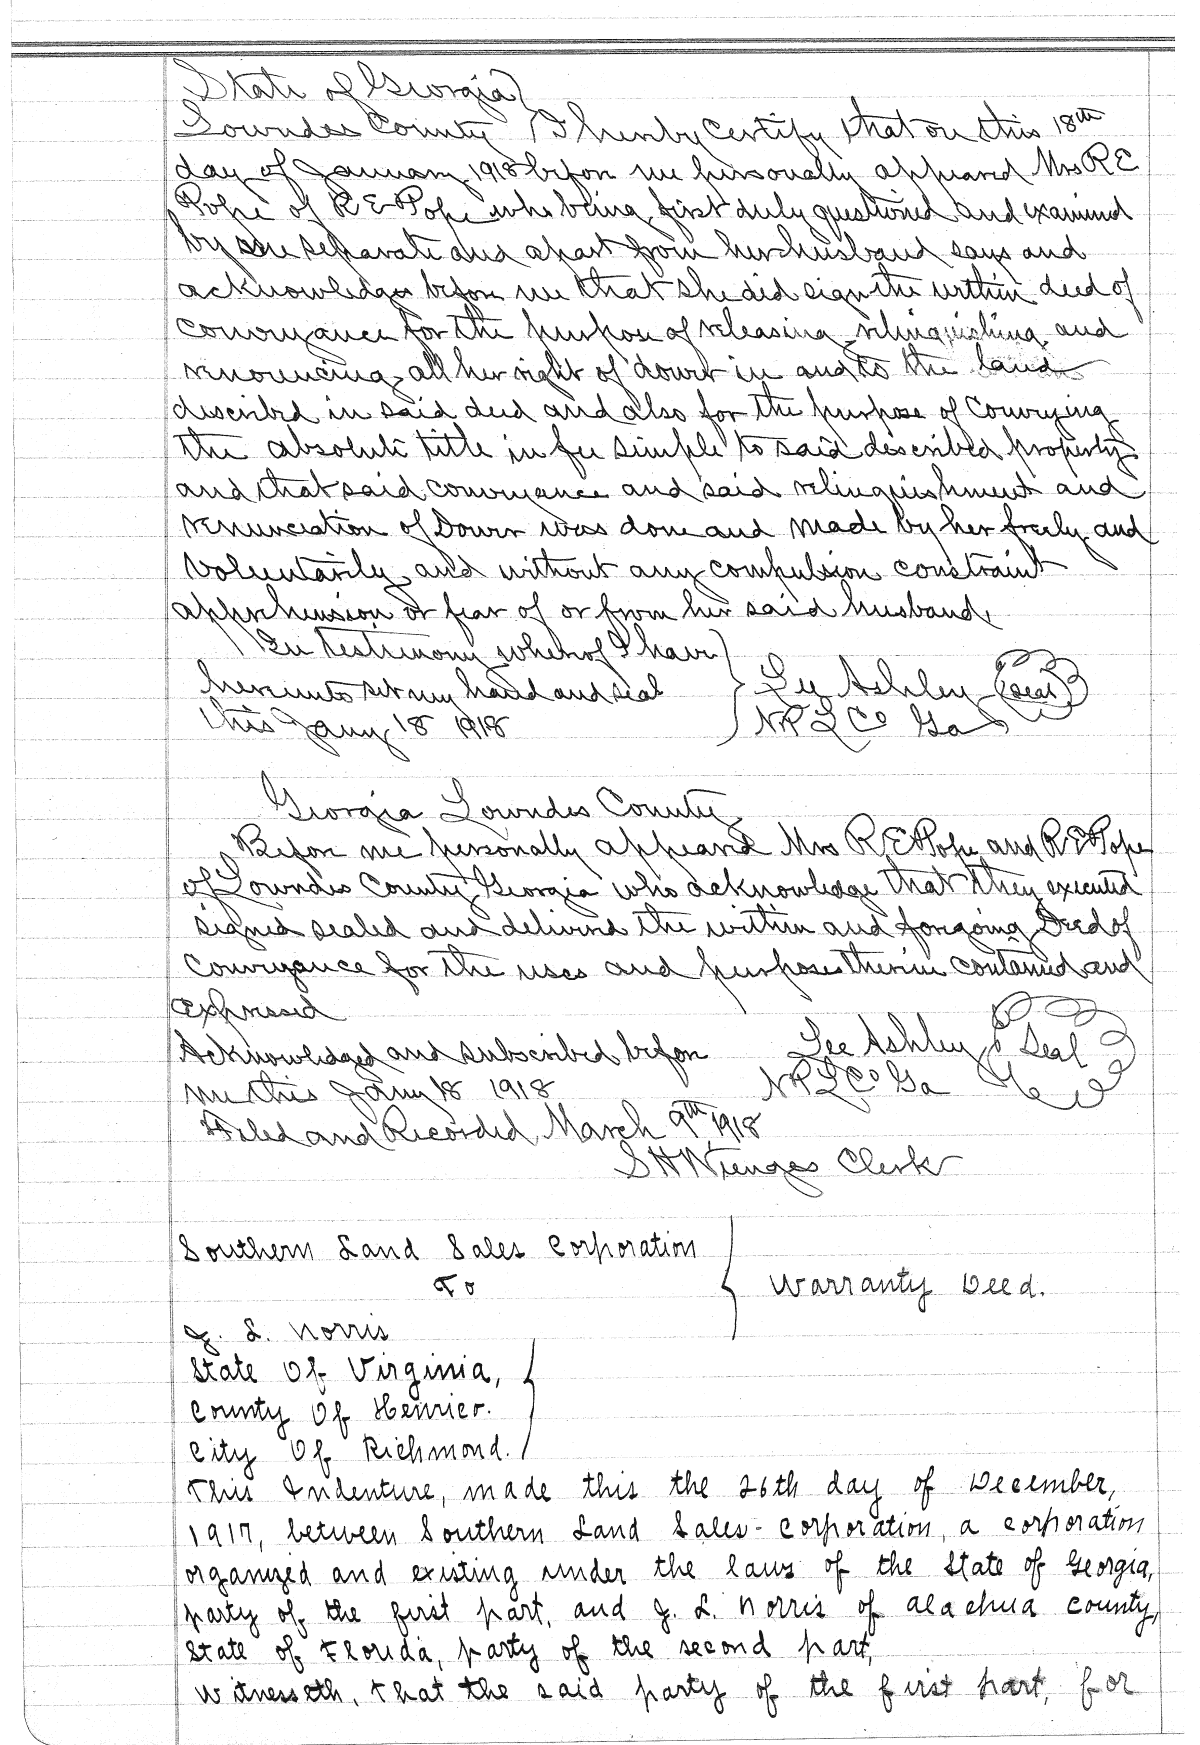 State of Georgia }
Lowndes County } I hereby certify that on this 18th
day of January 1918 before me personally appeared Mrs R E
Pope of R E Pope who being first duly questioned and examined
by me separate and apart from her husband says and
acknowledges before me that she did sign the within deed of
conveyance for the purpose of releasing relinquishing and
renouncing all her right of dower in and to the land
described in said deed and also for the purpose of conveying
the absolute title in fee simple to said described property
and that said conveyance and said relinquishment and
renunciation of Dower was done and made by her freely and
voluntarily and without any compulsion constraint
apprehension or fear of or from her said husband.
In testimony whereof I have }
hereunto set my hand and seal } Lee Ashley (Seal)
this Jany 18 1918 } N P L Co Ga
Georgia Lowndes County
Before me personally appeared Mrs R E Pope and R E Pope
of Lowndes County Georgia who acknowledge that they executed
signed sealed and delivered the within and foregoing Deed of
Conveyance for the uses and purposes therein contained and
expressed
Acknowledged and subscribed before Lee Ashley Seal
me this Jany 18 1918 N P L Co Ga
Filed and Recorded March 9th 1918
S H Wienges Clerk
Southern Land Sales Corporation }
To } Warranty Deed.
J. L. Norris }
State Of Virginia, }
County Of Henrico. }
City Of Richmond. }
This Indenture, made this the 26th day of December,
1917, between Southern Land Sales-Corporation, a corporation
organized and existing under the laws of the State of Georgia,
party of the first part, and J. L. Norris of Alachua County,
State of Florida, party of the second part,
Witnesseth, that the said party of the first part, for